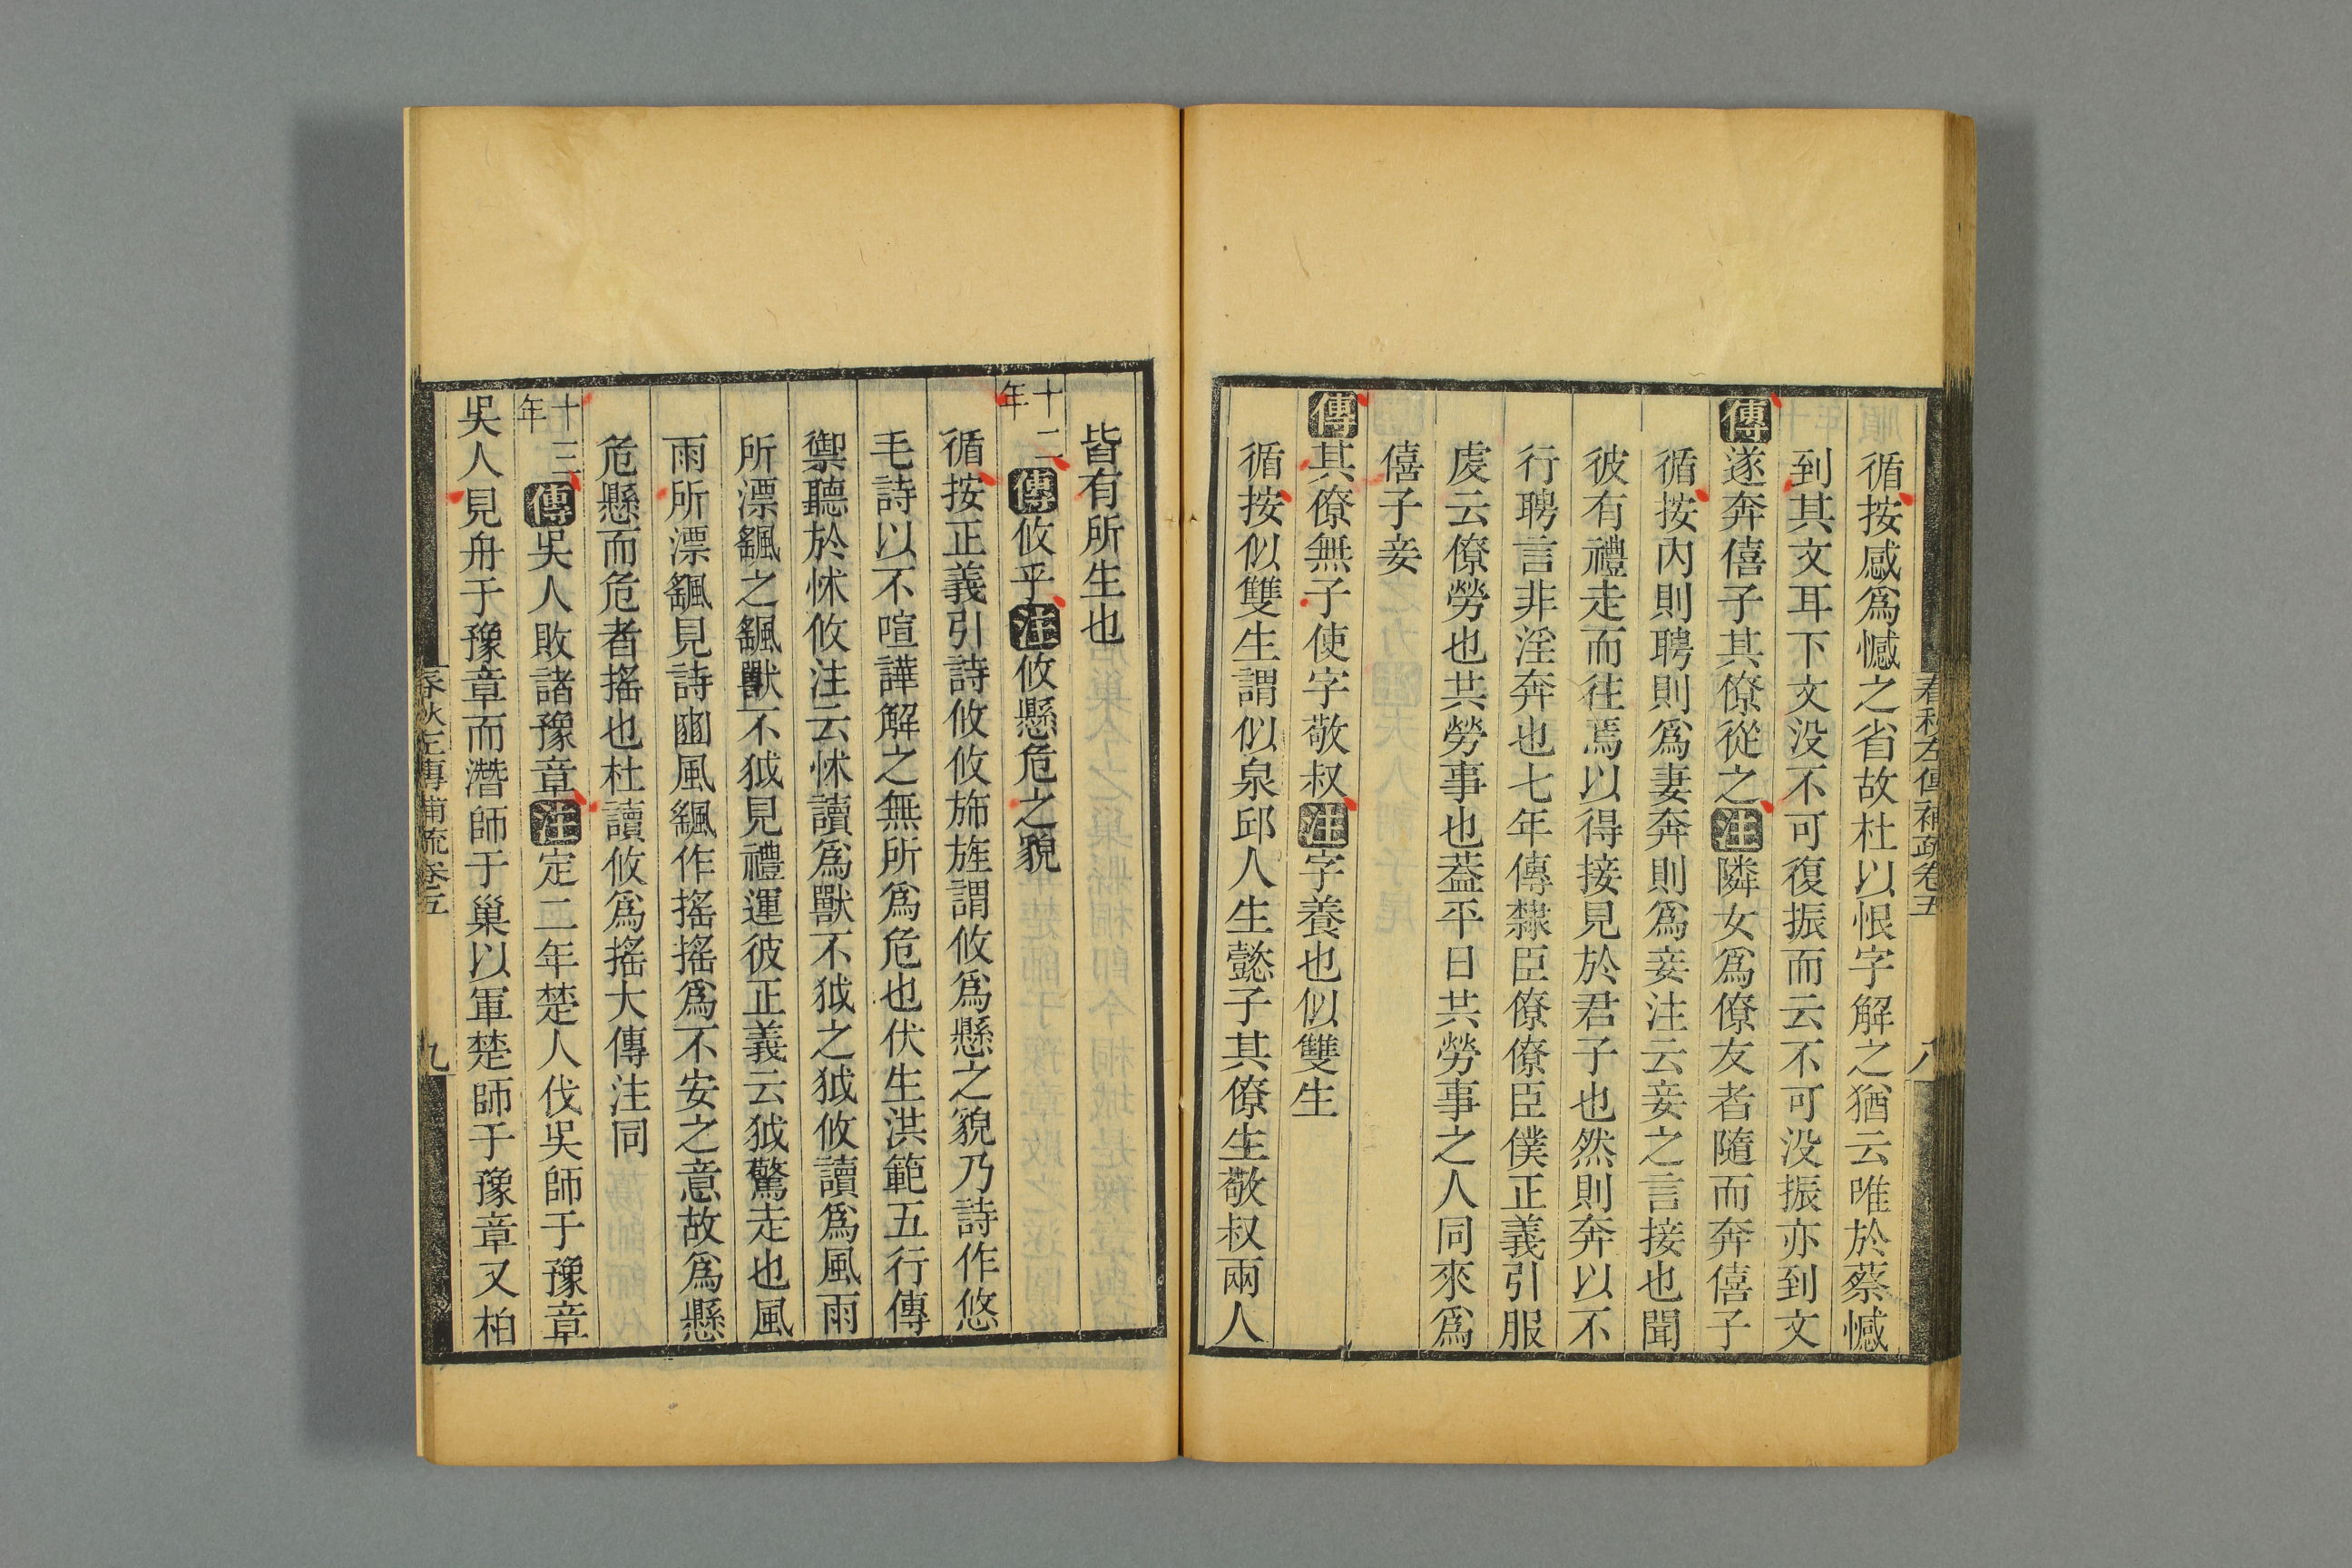 春秋左傳補疏卷五
八
循按感爲憾之省故杜以恨字解之猶云唯於蔡憾
到其文耳下文没不可復振而云不可没振亦到文
傳遂奔僖子其僚從之注隣女爲僚友者隨而奔僖子
循按内則聘則爲妻奔則爲妾注云妾之言接也聞
彼有禮走而往焉以得接見於君子也然則奔以不
行聘言非淫奔也七年傳隸臣僚僚臣僕正義引服
虔云僚勞也共勞事也葢平日共勞事之人同來爲
僖子妾
傳其僚無子使字敬叔注字養也似雙生
循按似雙生謂似泉邱人生懿子其僚生敬叔兩人
皆有所生也
十二年傳攸乎注攸懸危之貌
循按正義引詩攸攸斾旌謂攸爲懸之貌乃詩作悠
毛詩以不喧譁解之無所爲危也伏生洪範五行傳
禦聽於怵攸注云怵讀爲獸不狘之狘攸讀爲風雨
所漂颻之颻獸不狘見禮運彼正義云狘驚走也風
雨所漂颻見詩豳風颻作搖搖爲不安之意故爲懸
危懸而危者搖也杜讀攸爲搖大傳注同
十三年傳吳人敗諸豫章注定二年楚人伐吳師于豫章
吳人見舟于豫章而潛師于巢以軍楚師于豫章又柏
春秋左傳補疏卷五
九